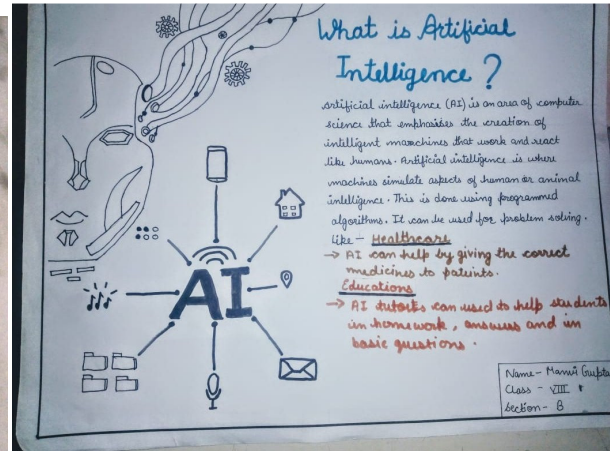 What is Artificial
Intelligence ?
Artificial intelligence (AI) is an area of computer
science that emphasises the creation of
intelligent maachines that work and react
like humans. Artificial intelligence is where
machines simulate aspects of human or animal
intelligence. This is done using programmed
algorithms. It can be used for problem solving.
like - Healthcare
→ AI can help by giving the correct
medicines to pateints.
Educations
→ AI tutors can used to help students
in homework, answers and in
basic questions.
AI
Name - Manvi Gupta
Class - VIII
Section - B